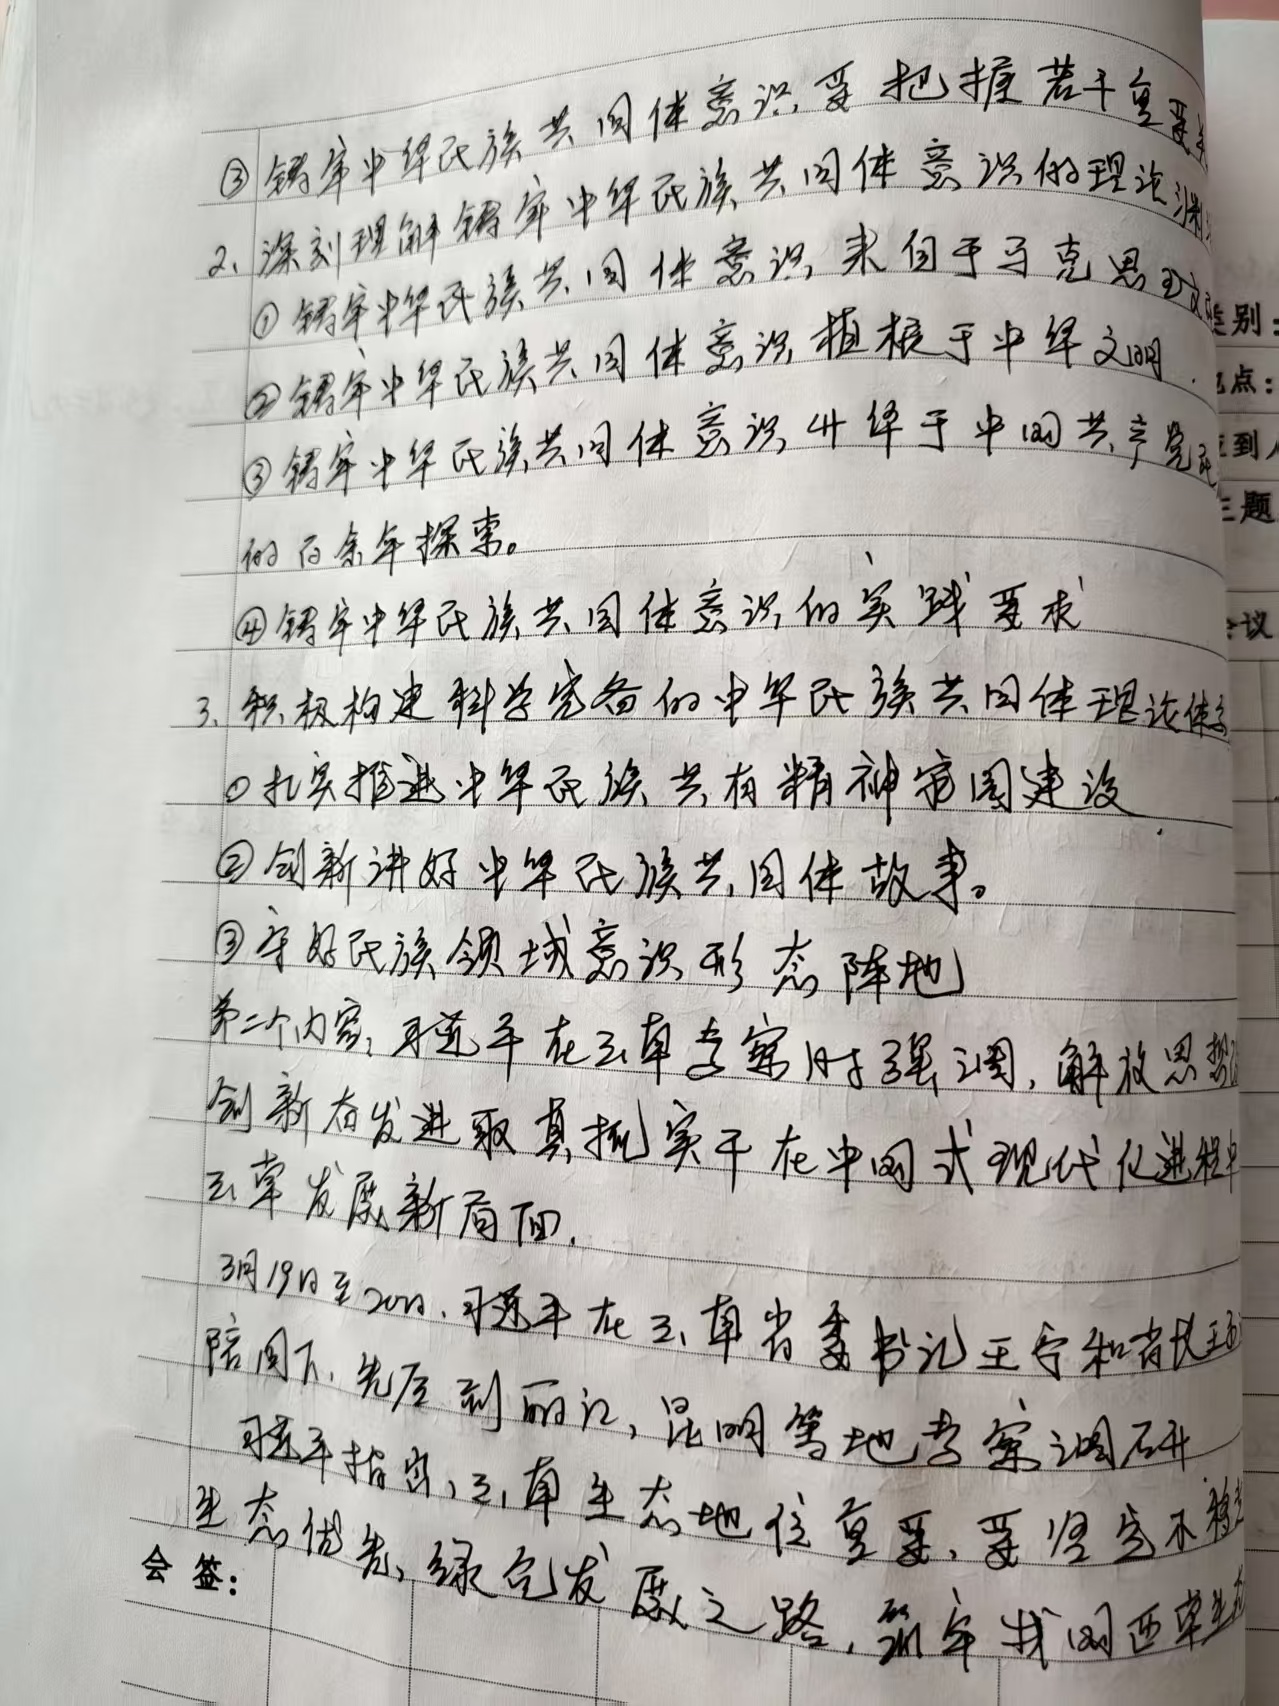 ③铸牢中华民族共同体意识要把握若干重要关
2、深刻理解铸牢中华民族共同体意识的理论渊
①铸牢中华民族共同体意识来自于马克思主义
②铸牢中华民族共同体意识植根于中华文明.
③铸牢中华民族共同体意识升华于中国共产党
的百余年探索。
④铸牢中华民族共同体意识的实践要求
3、积极构建科学完备的中华民族共同体理论体系
①扎实推进中华民族共有精神家园建设
②创新讲好中华民族共同体故事。
③守好民族领域意识形态阵地
第二个内容:习近平在云南考察时强调,解放思想
创新奋发进取真抓实干在中国式现代化进程中
云南发展新局面.
3月19日至20日,习近平在云南省委书记王宁和省长王予
陪同下,先后到丽江,昆明等地考察调研
习近平指出,云南生态地位重要,要坚定不移走
生态优先,绿色发展之路,筑牢我国西南生态
会签:
类别:
地点:
应到人
主题
会议